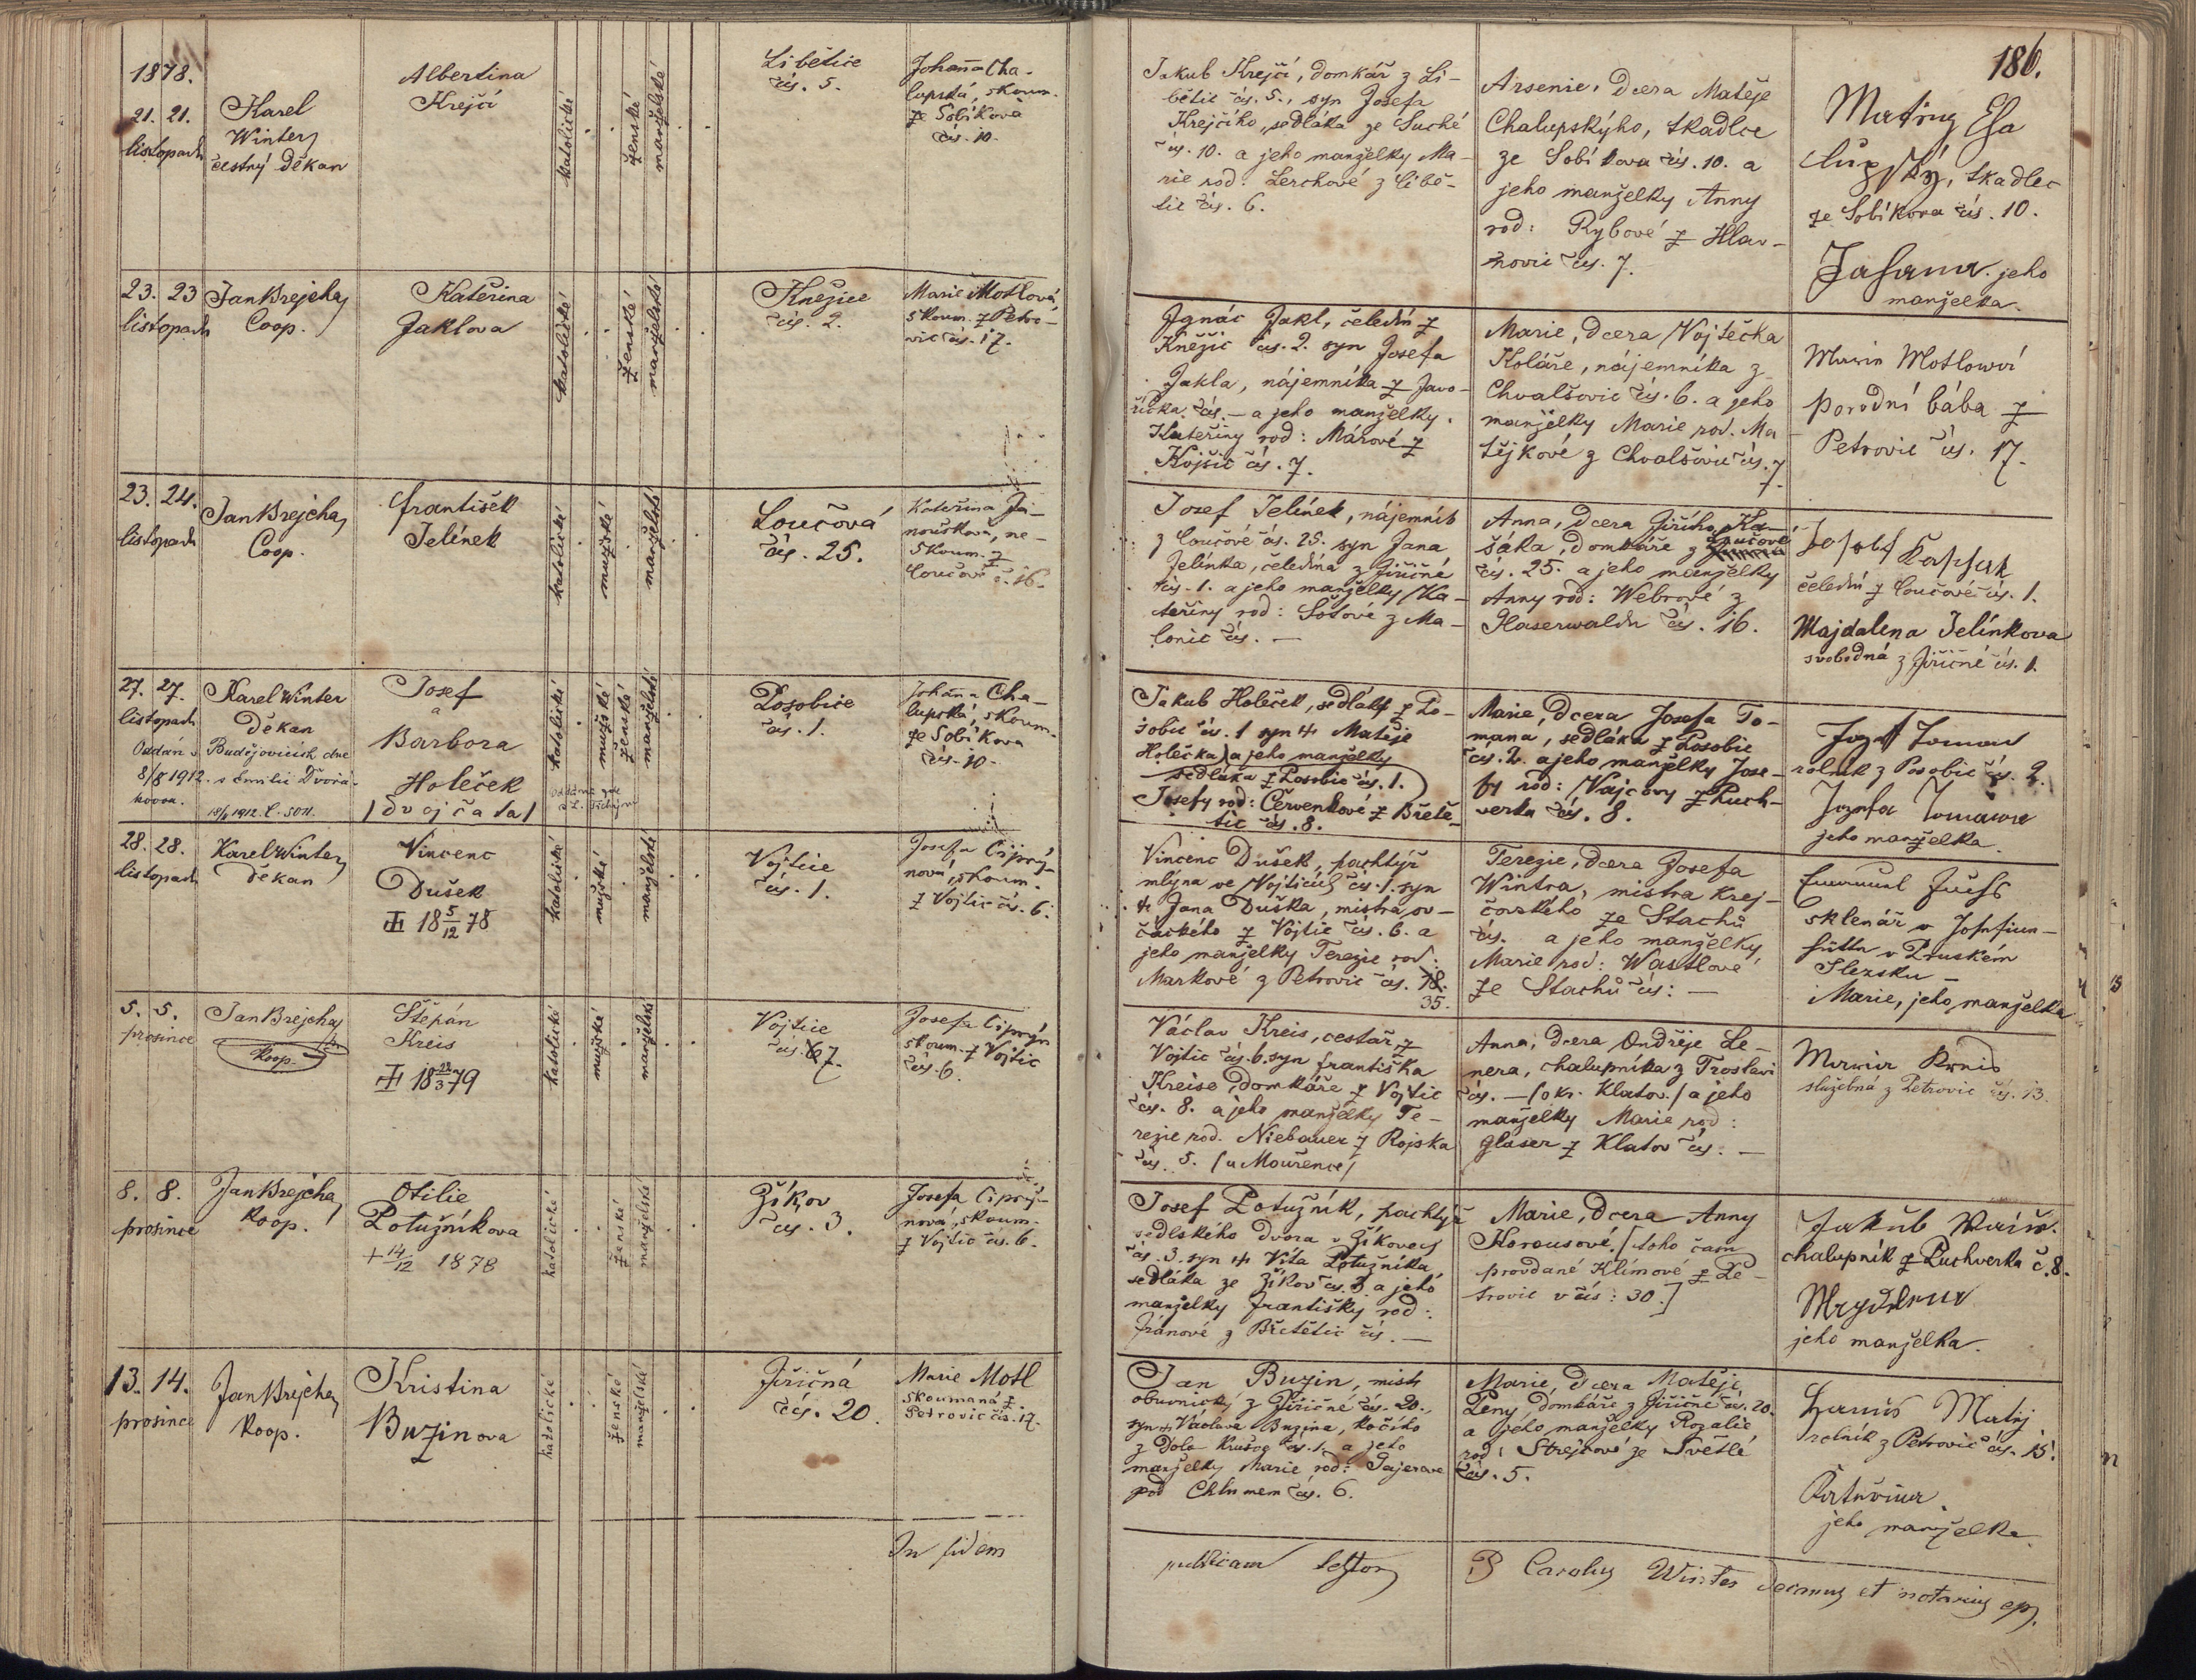 186.
1878.
21. 21.
listopadu
Karel
Winter
čestný Děkan
Albertina
Krejčí
katolické
ženské
manželské
Libětice
čís. 5.
Johanna Cha-
lupská, skoum.
ze Sobíkova
čís. 10.
Jakub Krejčí, domkář z Li-
bětic čís. 5., syn Josefa
Krejčího, sedláka ze Suché
čís. 10. a jeho manželky Ma-
rie rod. Lerchové z Libě-
tic čís. 6.
Arsenie, dcera Matěje
Chalupskýho, tkadlce
ze Sobíkova čís. 10. a
jeho manželky Anny
rod: Rybové z Hlav-
novic čís. 7.
tkadlec
ze Sobíkova čís. 10.
jeho
manželka.
23. 23
listopadu
Jan Brejcha
Coop.
Kateřina
Jaklova
katolické
ženské
manželské
Kněžice
čís. 2.
Marie Motlová,
skoum. z Petro-
vic čís. 17.
Ignác Jakl, čeledín z
Kněžic čís. 2. syn Josefa
Jakla, nájemníka z Javo-
říčka čís. — a jeho manželky
Kateřiny rod: Márové z
Kojšic čís. 7.
Marie, dcera Vojtěcha
Koláře, nájemníka z
Chvalšovic čís. 6. a jeho
manželky Marie rod. Ma-
tějkové z Chvalšovic čís. 7
Marie Motlowá
porodní bába z
Petrovic čís. 17.
23. 24.
listopadu
Jan Brejcha,
Coop.
František
Jelínek
katolické
mužské
manželské
Loučová
čís. 25.
Kateřina Ja-
noušková, ne-
skoum. z
Loučové č. 16.
Josef Jelínek, nájemník
z Loučové čís. 25. syn Jana
Jelínka, čeledína z Jiřičné
čís. 1. a jeho manželky Ka-
teřiny rod: Šotové z Ma-
lonic čís. —
Anna, dcera Jiřího Ka-
šáka, domkáře z Loučové
čís. 25. a jeho manželky
Anny rod: Webrové z
Glaserwaldu čís. 16.
čeledín z Loučové čís. 1.
Majdalena Jelínkova
svobodná z Jiřičné čís. 1.
27. 27.
listopadu
Karel Winter
Děkan
Oddán v Budějovicích dne
8/8 1912. s Emilií Dvořá-
kovou.
Josef
a
Barbora
Holeček
/dvojčata/
katolické
mužské
ženské
manželské
Posobice
čís. 1.
Johanna Cha-
lupská, skoum.
ze Sobíkova
čís. 10.
Jakub Holeček, sedlák z Po-
sobic čís. 1 syn + Matěje
Holečka) a jeho manželky
sedláka z Posobic čís. 1.
Josefy rod: Červenkové z Břete-
tic čís. 8.
Marie, dcera Josefa To-
mana, sedláka z Posobic
čís. 2. a jeho manželky Jose-
fy rod: Vajcovy z Puch-
verka čís. 8.
Jozef Toman
rolník z Posobic čís. 2.
Jozefa Tomanova
jeho manželka.
28. 28.
listopadu
Karel Winter,
děkan
Vincenc
Dušek
18 5/12 78
katolické
mužské
manželské
Vojtice
čís. 1.
Josefa Ciprý-
nová, skoum.
z Vojtic čís. 6.
Vincenc Dušek, pachtýř
mlýna ve Vojticích čís. 1. syn
+ Jana Duška, mistra ov-
čáckého z Vojtic čís. 6. a
jeho manželky Terezie rod:
Markové z Petrovic čís. 18.
35.
Terezie, dcera Josefa
Wintra, mistra krej-
čovského ze Stachů
čís. a jeho manželky
Marie rod: Wastlové
ze Stachů čís: —
Emanuel
sklenář v Josefien-
hütte v Pruském
Slezsku —
Marie, jeho manželka
5. 5.
prosince
Jan Brejcha
Koop.
Štěpán
Kreis
18 28/3 79
katolické
mužské
manželské
Vojtice
čís. 7.
Josefa Ciprýn
skoum. z Vojtic
čís. 6.
Václav Kreis, cestář z
Vojtic čís. 6. syn Františka
Kreise, domkáře z Vojtic
čís. 8. a jeho manželky Te-
rezie rod. Niebauer z Rojska
čís. 5. /u Mouřence/
Anna, dcera Ondřeje Le-
nera, chalupníka z Troslavi
čís. — /okr. Klatov./ a jeho
manželky Marie rod:
Glaser z Klatov čís. —
služebná z Petrovic čís. 13.
8. 8.
prosince
Jan Brejcha,
Koop.
Otilie
Potužníkova
+ 14/12 1878
katolické
ženské
manželské
Žíkov
čís. 3.
Josefa Ciprý-
nová, skoum.
z Vojtic čís. 6.
Josef Potužník, pachtýř
sedlského dvora v Žíkovech
čís. 3. syn + Víta Potužníka,
sedláka ze Žíkov čís. 3. a jeho
manželky Františky rod:
Fránové z Břetětic čís. —
Marie, dcera Anny
Korousové, /toho času
provdané Klímové z Pe-
trovic v čís: 30.]
Jakub
chalupník z Puchverka č. 8.
jeho manželka.
13. 14.
prosince
Jan Brejcha
Koop.
Kristina
Buzinova
katolické
ženské
manželské
Jiřičná
čís. 20.
Marie Motl
skoumaná z
Petrovic čís. 17.
Jan Buzin, mistr
obuvnický z Jiřičné čís. 20.,
syn + Václava Buzina, kočího
z Dola Krušec čís. 1. a jeho
manželky Marie rod: Gajerove
pod Chlumem čís. 6.
Marie, dcera Matěje
Peny domkáře z Jiřičné čís. 20.
a jeho manželky Rozalie
rod: Strejcové ze Světlé
čís. 5.
Matěj
rolník z Petrovic čís. 15.
jeho manželka
In fidem
publicam testor
P Carolus Winter decanus et notarius ep.